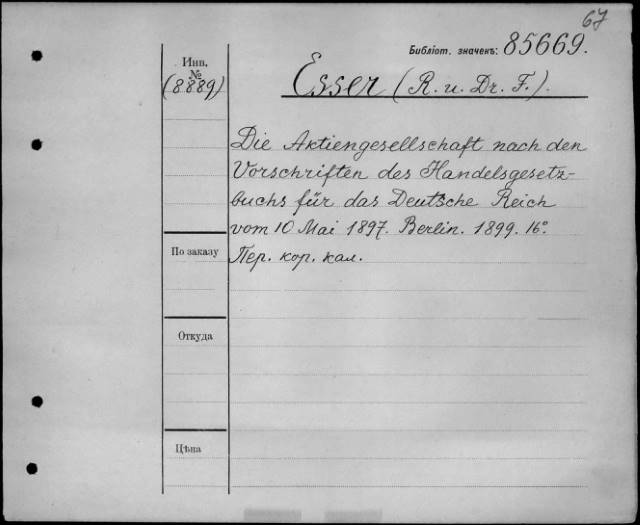 67
Библіот. значекъ: 85669.
Инв.
№
(8889)
Esser (R. u. Dr. F.).
Die Aktiengesellschaft nach den
Vorschriften des Handelsgesetz-
buchs für das Deutsche Reich
vom 10 Mai 1897. Berlin. 1899. 16º.
По заказу
Пер. кор. кал.
Откуда
Цѣна